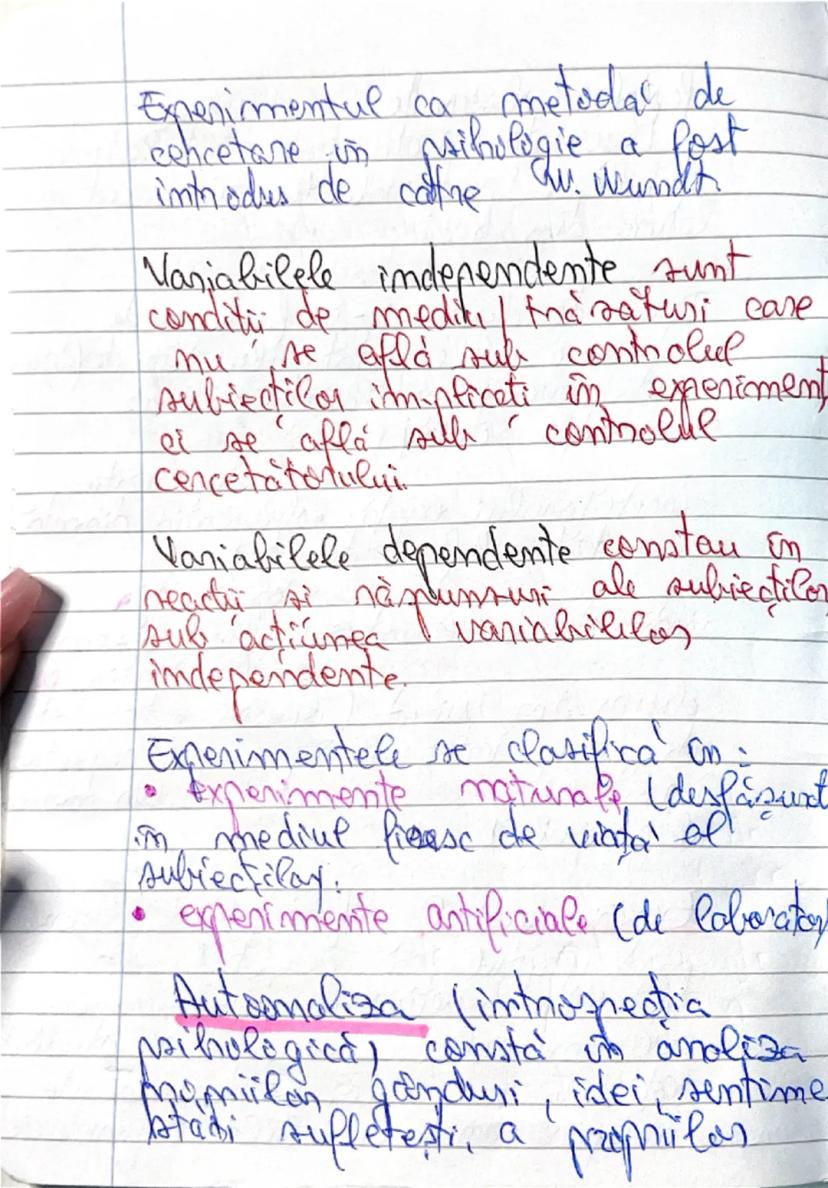 Experimentul ca metodă de
cercetare în psihologie a fost
introdus de către W. Wundt
Variabilele independente sunt
condiții de mediu / trăsături care
nu se află sub controlul
subiecților implicați în experiment
ci se află sub controlul
cercetătorului.
Variabilele dependente constau în
reacții și răspunsuri ale subiecților
sub acțiunea variabilelor
independente.
Experimentele se clasifică în:
• experimente naturale (desfășurat
în mediul firesc de viață al
subiecților.
• experimente artificiale (de laborator
Autoanaliza (introspecția
psihologică) constă în analiza
propriilor gânduri, idei, sentime
stări sufletești, a propriilor